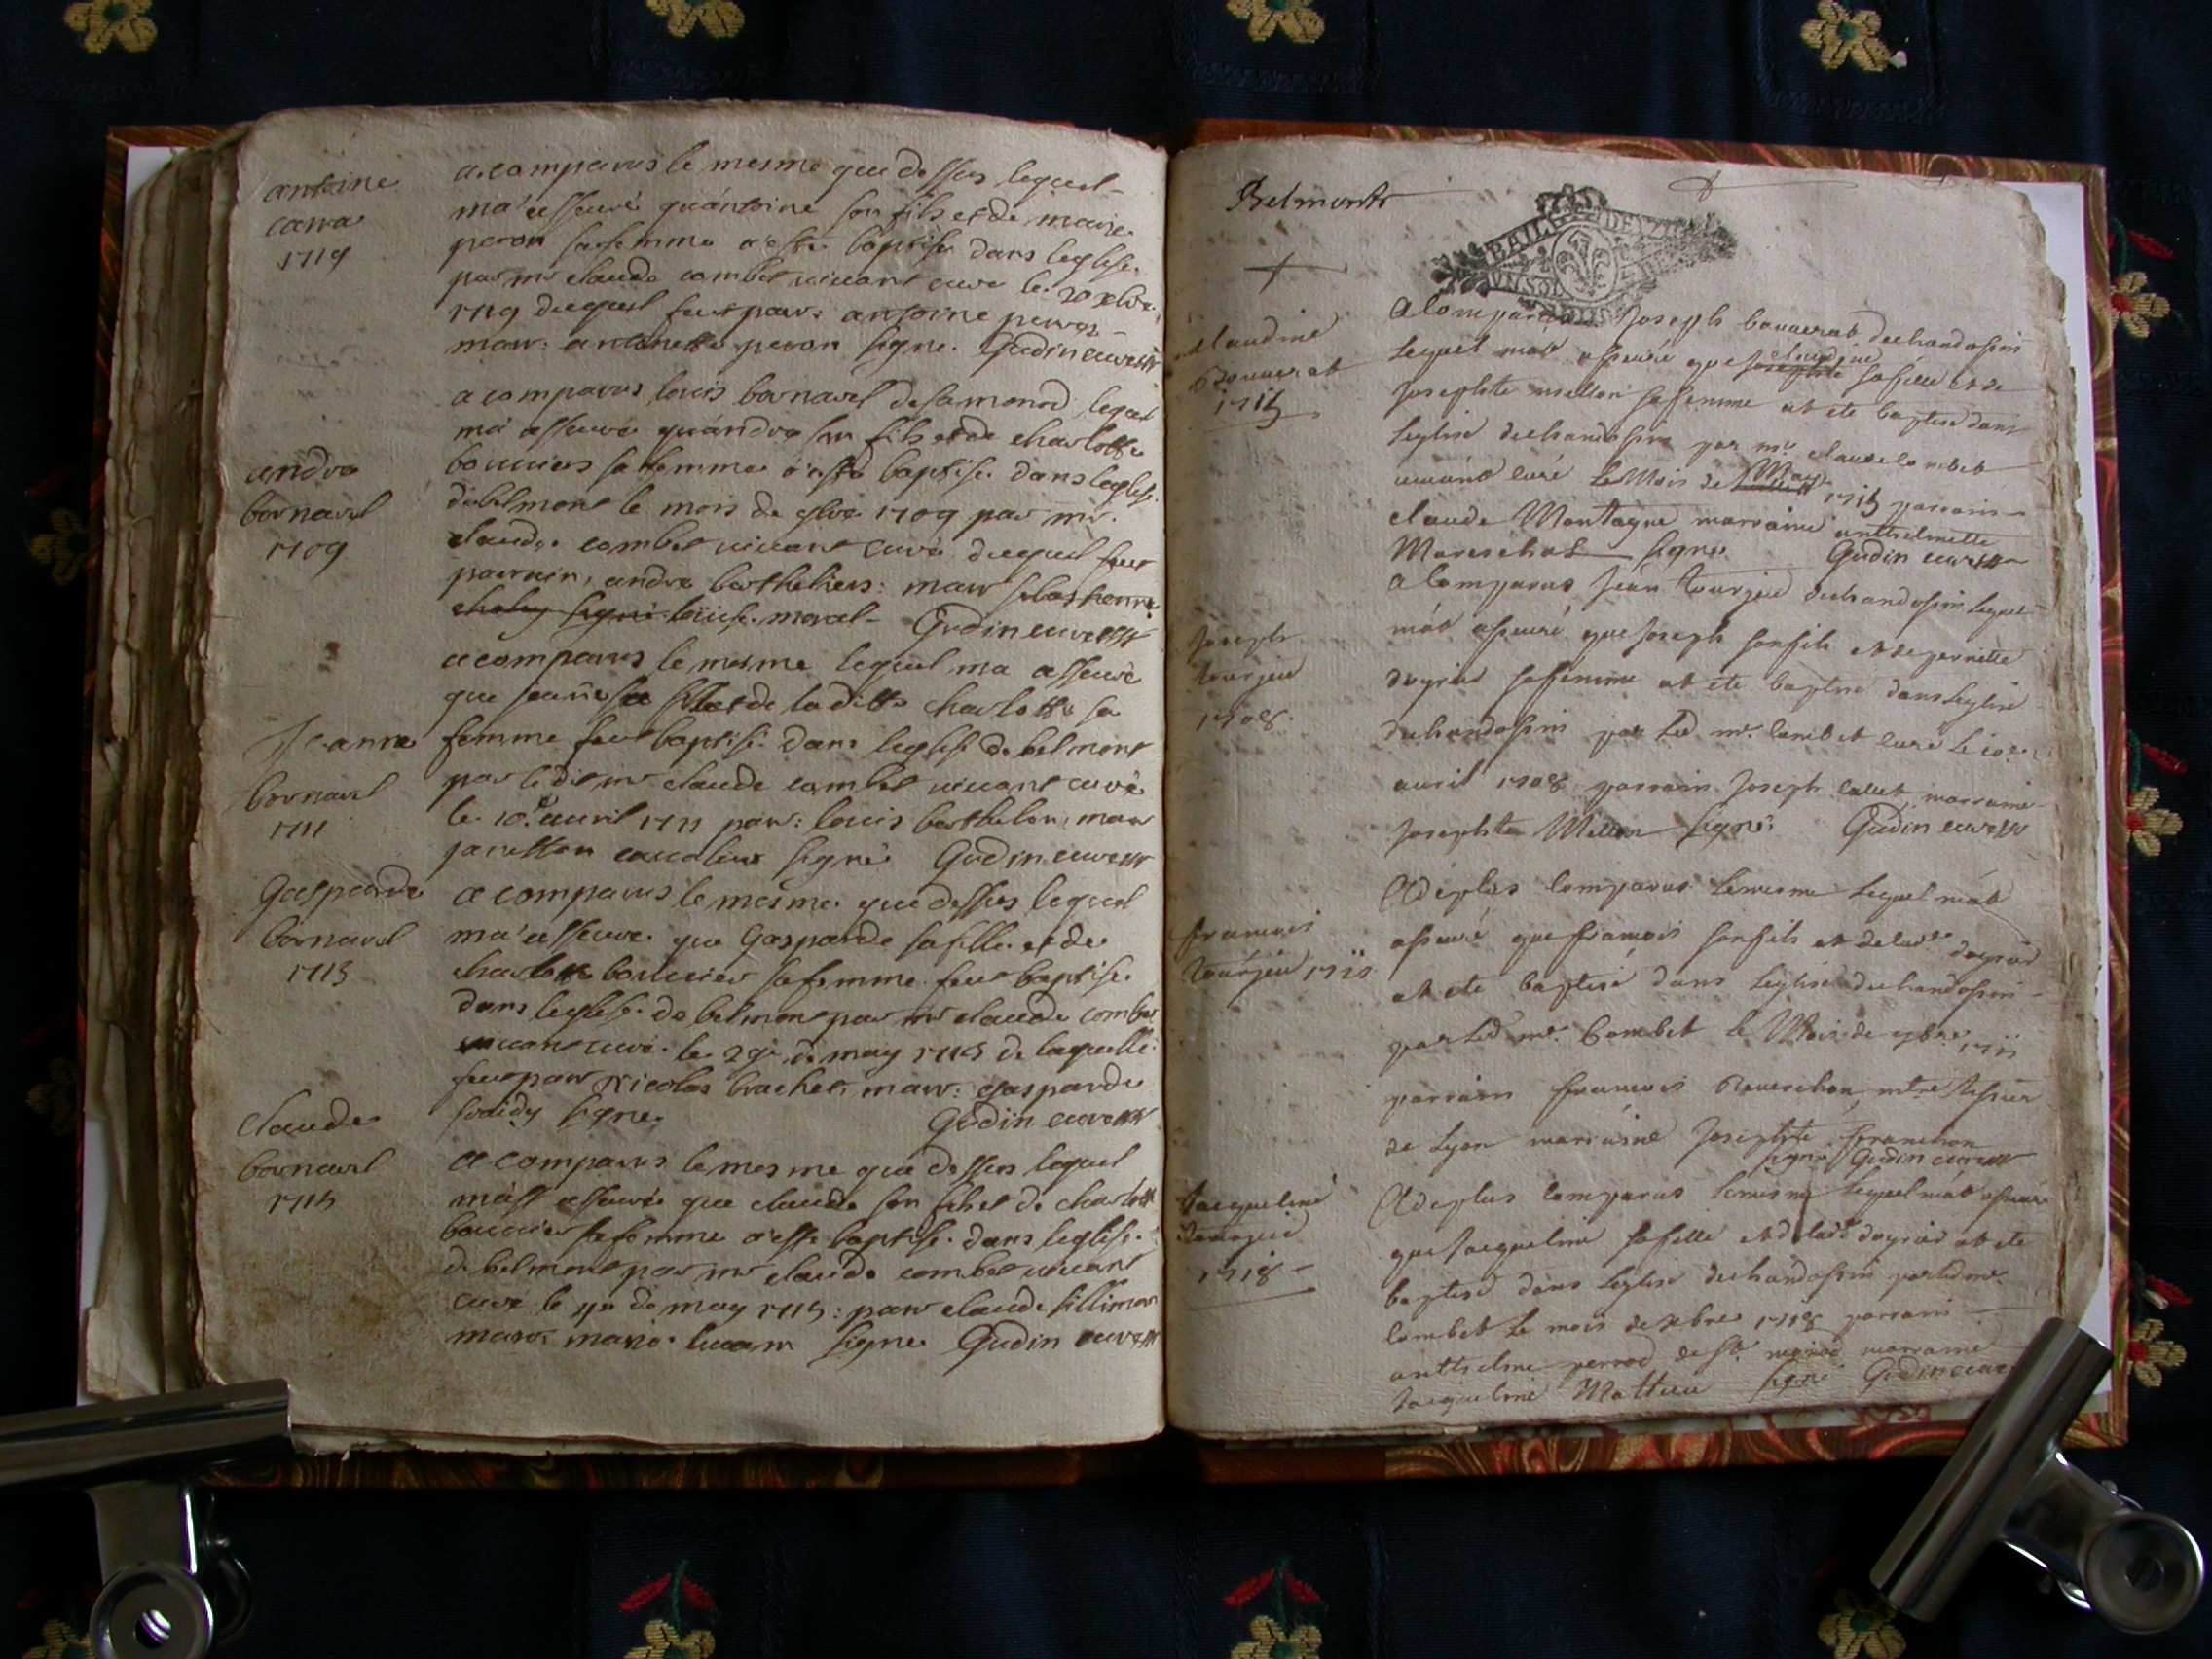 antoine
carra
1719
a comparus le mesme que dessus lequel
ma asseuré quántoine son fils et de marie
peron sa femme a esté baptisé dans leglise
par mr claude combet vivant curé le 20 xbre
1719 duquel feut parr: antoine perros
marr: anthnette peron signe. Gudin curé
andre
bornarel
1709
a comparus louis bornarel de samonod lequel
má asseuré quándre son fils et de charlotte
bouvier sa femme a esté baptisé dans leglise
de belmont le mois de 1709 par mr.
claude combet vivant curé duquel feut
parrain, andre berthelier: marr
louise morel Gudin curé
Jeanne
bornarel
1711
a comparus le mesme lequel ma asseuré
que jeanne sa fille et de laditte charlotte sa
femme feut baptisé dans leglise de belmont
par ledit mr claude combet vivant curé
le 10e auril 1711 parr: louis berthelon, marr
signé Gudin curé
Gasparde
bornarel
1713
a comparus le mesme que dessus lequel
má asseuré que Gasparde sa fille et de
charlotte bouvier sa femme feut baptisé
dans leglise de belmont par mr claude combet
vivant curé le 29e de may 1713 de laquelle
feut parr Nicolas brachet, marr: gasparde
signe Gudin curé
claude
bornarel
1715
a comparus le mesme que dessus lequel
asseuré que claude son fils et de charlotte
bouvier sa femme a esté baptisé dans leglise
de belmont par mr claude combet vivant
curé le de may 1715: parr claude
marr: marie signe Gudin curé
Belmont
BAILL DE
UN SOL
claudine
Bouverat
1715
A Comparus Joseph bouverat de chandossin
Lequel mat asseuré que Josephte claudine sa fille et de
Josephte millon sa femme at ete baptisé dans
Leglise de chandossin par mr. claude Combet
vivant Curé Le Mois de May 1715 parrain
claude Montagne marraine anthelmette
Mareschal signé Gudin curé
Joseph
tourjeu
1708
A Comparus Jean tourjeu de chandossin Lequel
mát asseuré que Joseph son fils et de pernette
doyrier sa femme at ete baptisé dans Leglise
de chandossin par Led mr. Combet Curé Le 10e
auril 1708 parrain Joseph Callet marraine
Josephte Millon signé Gudin curé
francois
tourjeu 1711
A de plus Comparus Le mesme Lequel mát
asseuré que francois son fils et de lad.e doyrier
at ete baptisé dans Leglise de chandossin
par Led mr. Combet le Mois de 1711
parrain francois mtre
de Lyon marraine Josephte franchon
signe Gudin curé
Jacqueline
tourjeu
1718
A de plus Comparus Le mesme Lequel mát asseuré
que Jacqueline sa fille et de lad.e doyrier at ete
baptisé dans Leglise de chandossin par Led mr.
Combet Le mois de xbre 1718 parrain
anthelme perrod de marraine
Jacqueline Mathieu signé Gudin curé